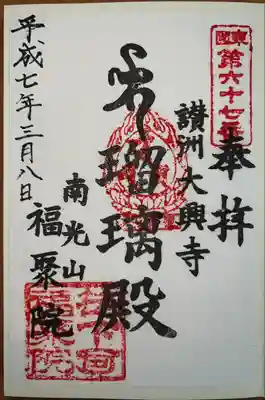 東國
第六十七番
奉拝
讃洲大興寺
瑠璃殿
南光山
福聚院
平成七年三月八日